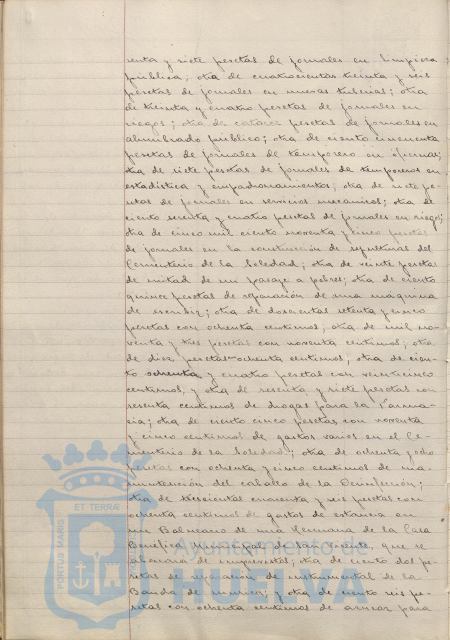 senta y siete pesetas de jornales en limpieza
pública; otra de cuatrocientas treinta y seis
pesetas de jornales en nuevas tuberias; otra
de treinta y cuatro pesetas de jornales en
riegos; otra de catorce pesetas de jornales en
alumbrado público; otra de ciento cincuenta
pesetas de jornales de temporero en oficinas;
otra de siete pesetas de jornales de temporeros en
estadistica y empadronamientos; otra de siete pe-
setas de jornales en servicios mecanicos; otra de
ciento sesenta y cuatro pesetas de jornales en riegos;
otra de cinco mil ciento noventa y cinco pesetas
de jornales en la construcción de sepulturas del
Cementerio de la Soledad; otra de veinte pesetas
de mitad de un pasaje a pobres; otra de ciento
quince pesetas de reparación de una máquina
de escribir; otra de doscientas setenta y cinco
pesetas con ochenta centimos; otra de mil no-
venta y tres pesetas con noventa centimos; otra
de diez pesetas ochenta centimos; otra de cien-
to ochenta y cuatro pesetas con veinticinco
centimos, y otra de sesenta y siete pesetas con
sesenta centimos de drogas para la Farma-
cia; otra de ciento cinco pesetas con noventa
y cinco centimos de gastos varios en el Ce-
menterio de la Soledad; otra de ochenta y ocho
pesetas con ochenta y cinco centimos de ma-
nutención del caballo de la Desinfección;
otra de trescientas cincuenta y seis pesetas con
ochenta centimos de gastos de estancia en
un Balneario de una Hermana de la Casa
Benefica municipal de San Vicente, que se
abonara de imprevistos; otra de ciento dos pe-
setas de reparación de instrumental de la
Banda de musica; y otra de ciento seis pe-
setas con ochenta centimos de arroz para
PORTUS MARIS
ET TERRÆ
Ayuntamiento de
HUELVA